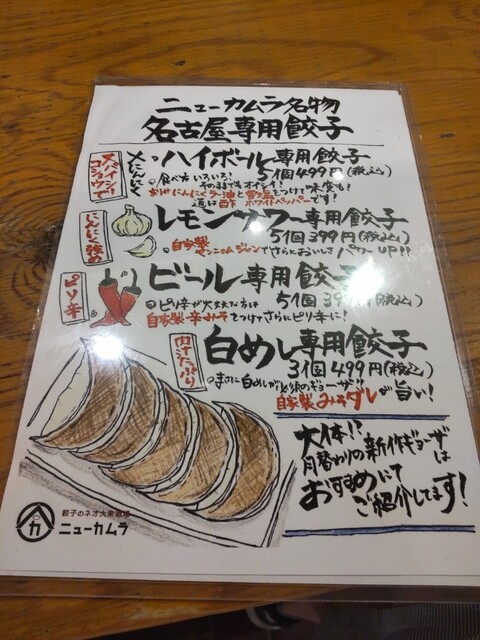 ニューカムラ名物
名古屋専用餃子
スパイシー
コショウで
大にんにく
・ハイボール専用餃子
5個499円(税込)
食べ方いろいろ!
そのままでもオイシイ!
おすすめは酢ホワイトペッパーです!
にんにく強め
レモンサワー専用餃子
5個399円(税込)
自家製
でさらにおいしさパワーUP!!
ピリ辛
ビール専用餃子
5個399円(税込)
ピリ辛が大丈夫な方は
自家製辛みそをつけてさらにピリ辛に!
肉汁たっぷり
白めし専用餃子
3個499円(税込)
まさに白めしが必須のギョーザ!!
自家製みそダレが旨い!
大体!?
月替わりの新作ギョーザは
おすすめにて
ご紹介してます!
カ
餃子のネオ大衆酒場
ニューカムラ